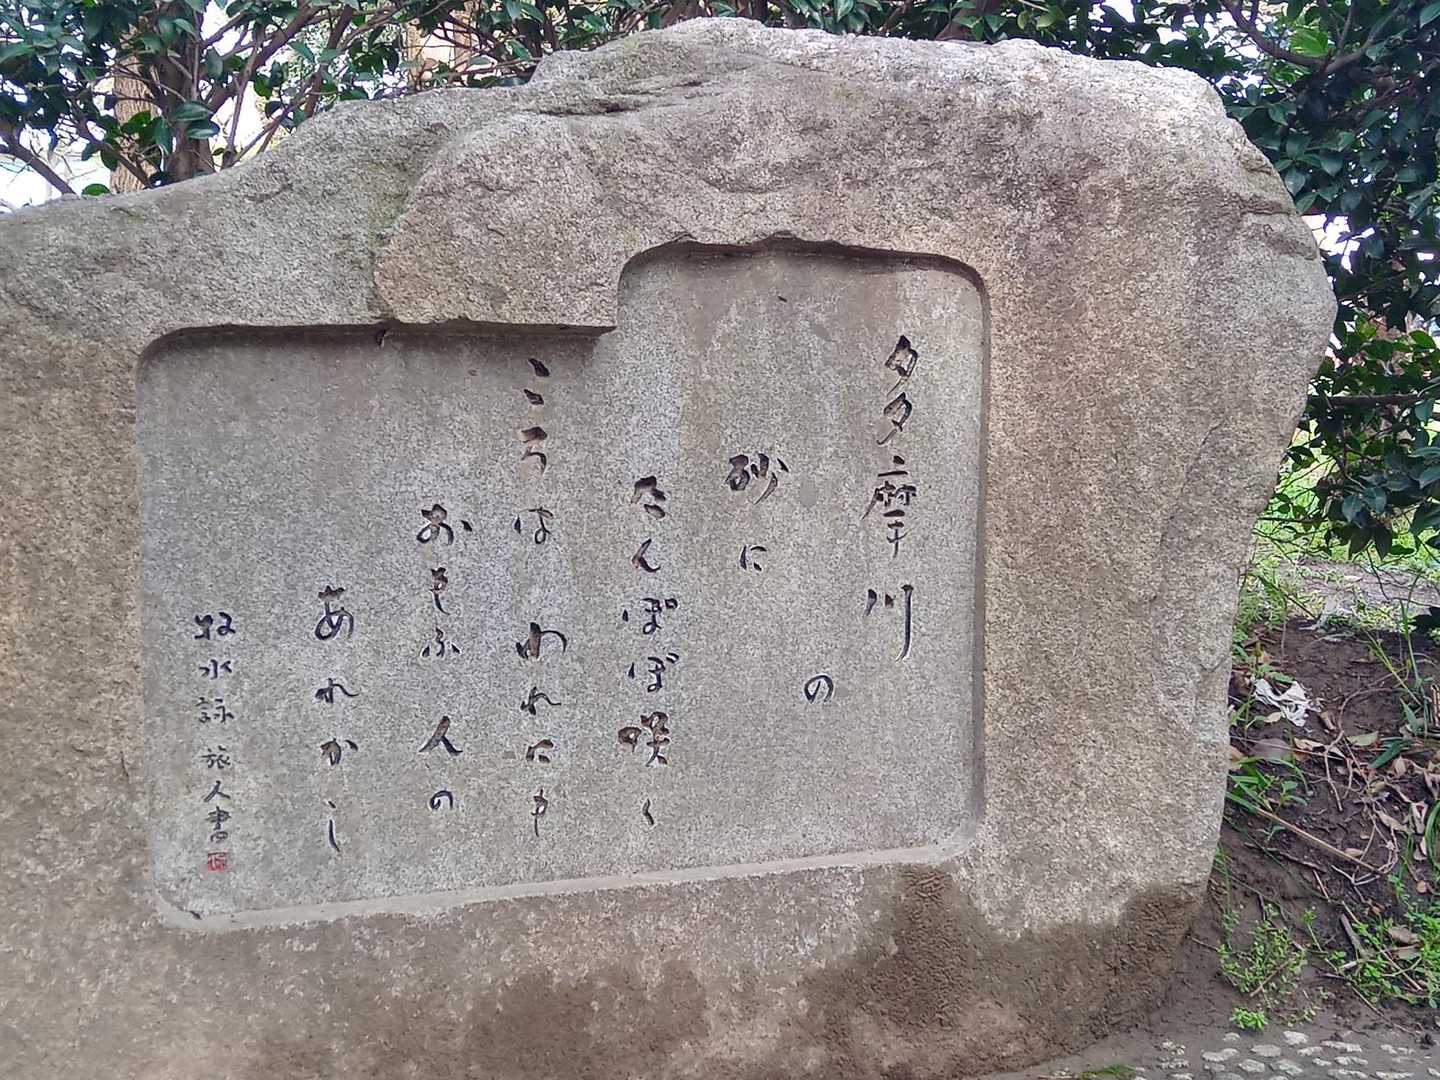 多摩川の
砂に
たんぽぽ咲く
ころは われにも
おもふ 人の
あれかし
牧水詠 旅人書